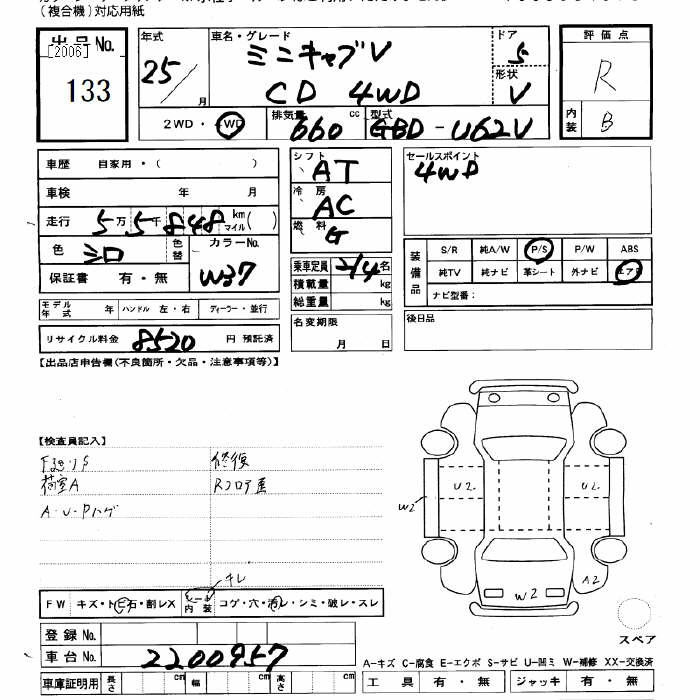 (複合機)対応用紙
出品No.
[2006]
133
年式
25/
月
車名・グレード
ミニキャブV
CD 4WD
ドア
5
形状
V
2WD・4WD
排気量
660
cc
型式
GBD-U62V
評価点
R
内装
B
車歴 自家用・( )
車検 年 月
走行 5万5千848 km マイル( )
色 シロ 色替 カラーNo.
W37
保証書 有・無
モデル年式 年 ハンドル 左・右 ディーラー・並行
リサイクル料金 8520 円 預託済
シフト
AT
冷房
AC
燃料
G
乗車定員 2/4名
積載量 kg
総重量 kg
名変期限
月 日
セールスポイント
4WD
装備品
S/R 純A/W P/S P/W ABS
純TV 純ナビ 革シート 外ナビ エアB
ナビ型番:
後日品
【出品店申告欄(不良箇所・欠品・注意事項等)】
【検査員記入】
修復
荷室A
Rフロア
A・U・Pハゲ
キレ
FW キズ・トビ石・割レX
シール 内装 コゲ・穴・汚レ・シミ・破レ・スレ
登録No.
車台No. 2200957
車庫証明用 長さ cm 幅 cm 高さ cm
U2
U2
W2
W2
A2
スペア
A-キズ C-腐食 E-エクボ S-サビ U-凹ミ W-補修 XX-交換済
工具 有・無 ジャッキ 有・無